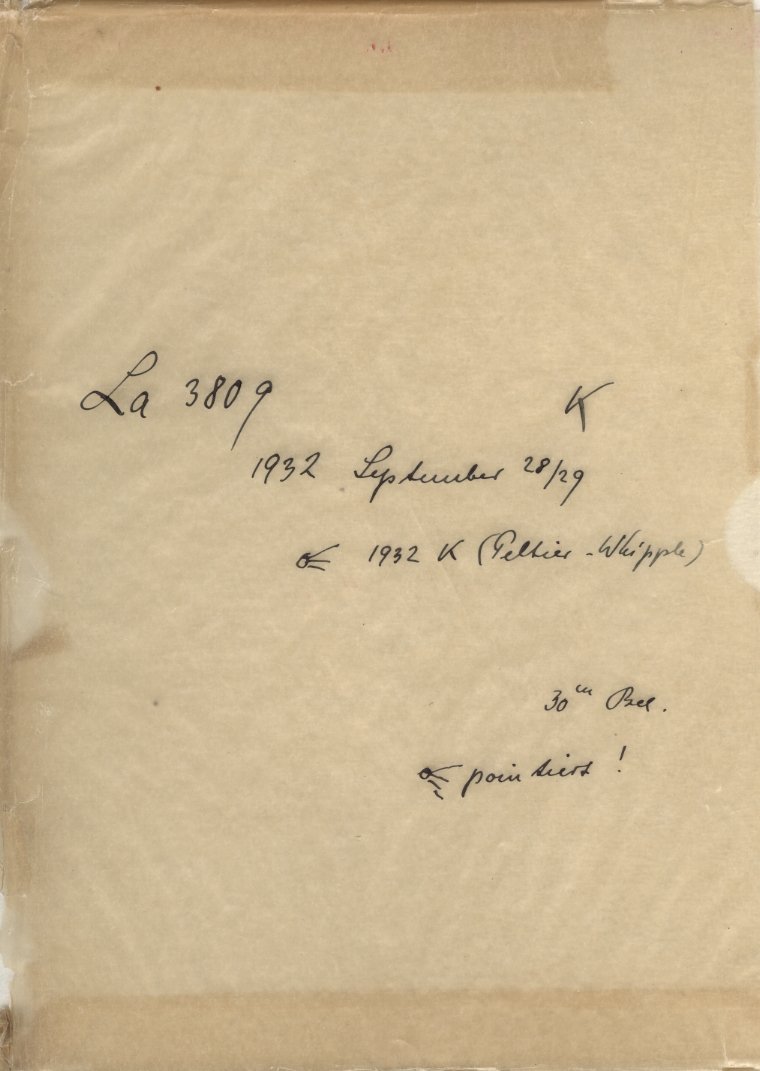 La 3809 K
1932 September 28/29
☄ 1932 K (Peltier-Whipple)
30ᵐ Bel.
☄ pointiert!